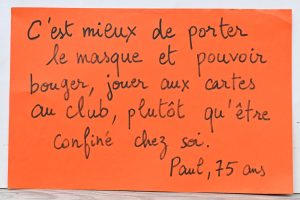 C'est mieux de porter
le masque et pouvoir
bouger, jouer aux cartes
au club, plutôt qu'être
confiné chez soi.
Paul, 75 ans